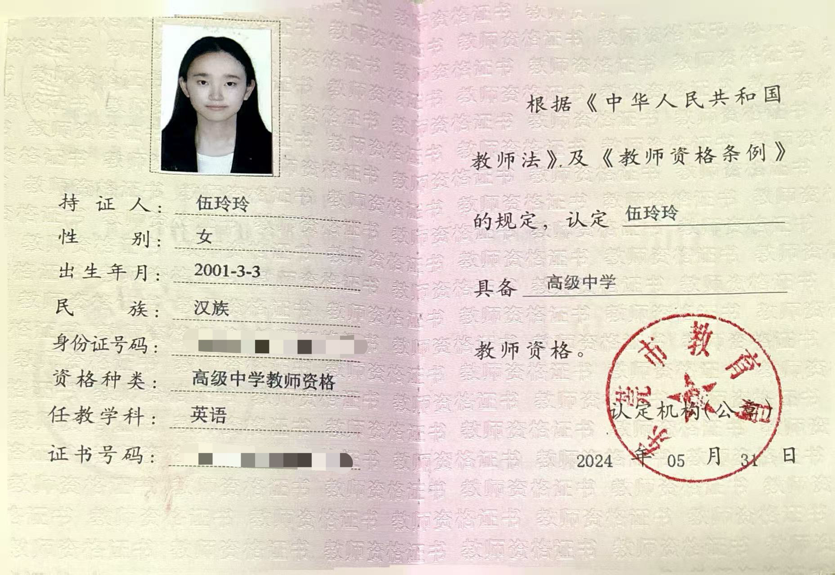 持证人：伍玲玲
性别：女
出生年月：2001-3-3
民族：汉族
身份证号码：
资格种类：高级中学教师资格
任教学科：英语
证书号码：
根据《中华人民共和国
教师法》及《教师资格条例》
的规定，认定 伍玲玲
具备 高级中学
教师资格。
东莞市教育局
认定机构（公章）
2024 年 05 月 31 日